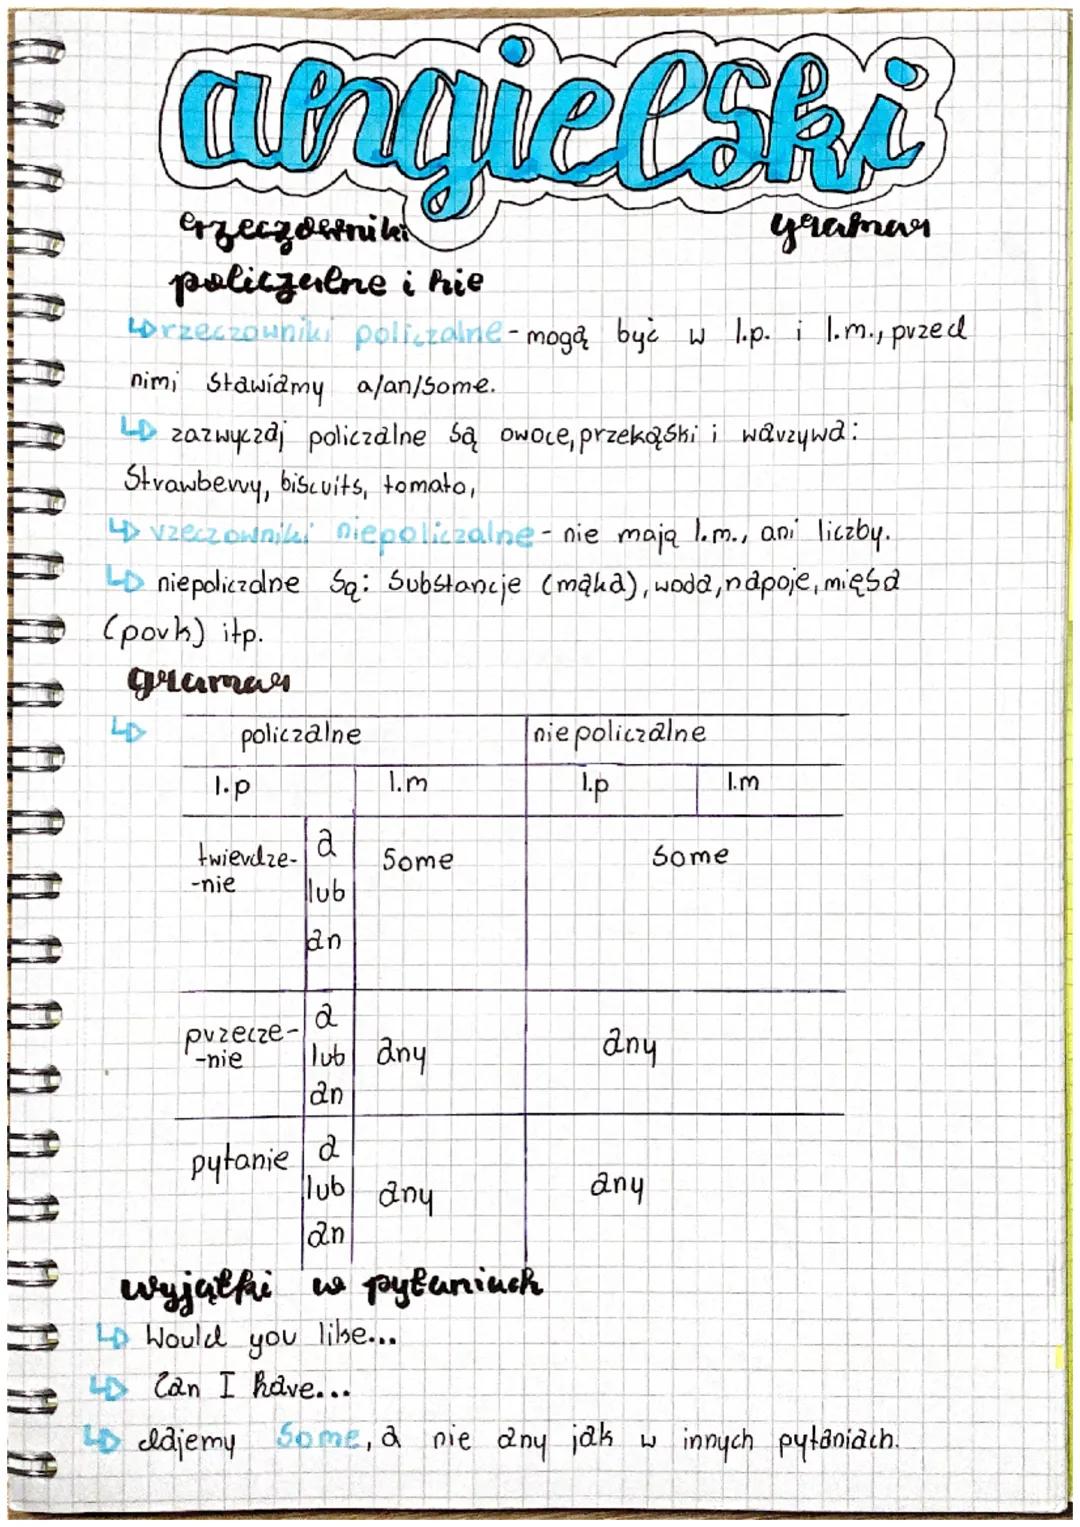 angielski
rzeczowniki gramar
policzalne i nie
rzeczowniki policzalne - mogą być w l.p. i l.m., przed
nimi stawiamy a/an/some.
zazwyczaj policzalne są owoce, przekąski i warzywa:
Strawberry, biscuits, tomato,
rzeczowniki niepoliczalne - nie mają l.m., ani liczby.
niepoliczalne są: Substancje (mąka), woda, napoje, mięsa
(pork) itp.
gramar
policzalne niepoliczalne
l.p l.m l.p l.m
twierdze- a Some Some
-nie lub
an
przecze- a
-nie lub any any
an
pytanie a
lub any any
an
wyjątki w pytaniach
Would you like...
Can I have...
dajemy Some, a nie any jak w innych pytaniach.